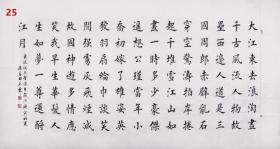 25
大江東去浪淘盡
千古風流人物故
壘西邊人道是三
國周郎赤壁亂石
起千堆雪江山如
畫一時多少豪傑
遙想公瑾當年小
喬初嫁了雄姿英
發羽扇綸巾談笑
間强虜灰飛煙滅
故國神遊多情應
笑我早生華髮人
生如夢一尊還酹
江月